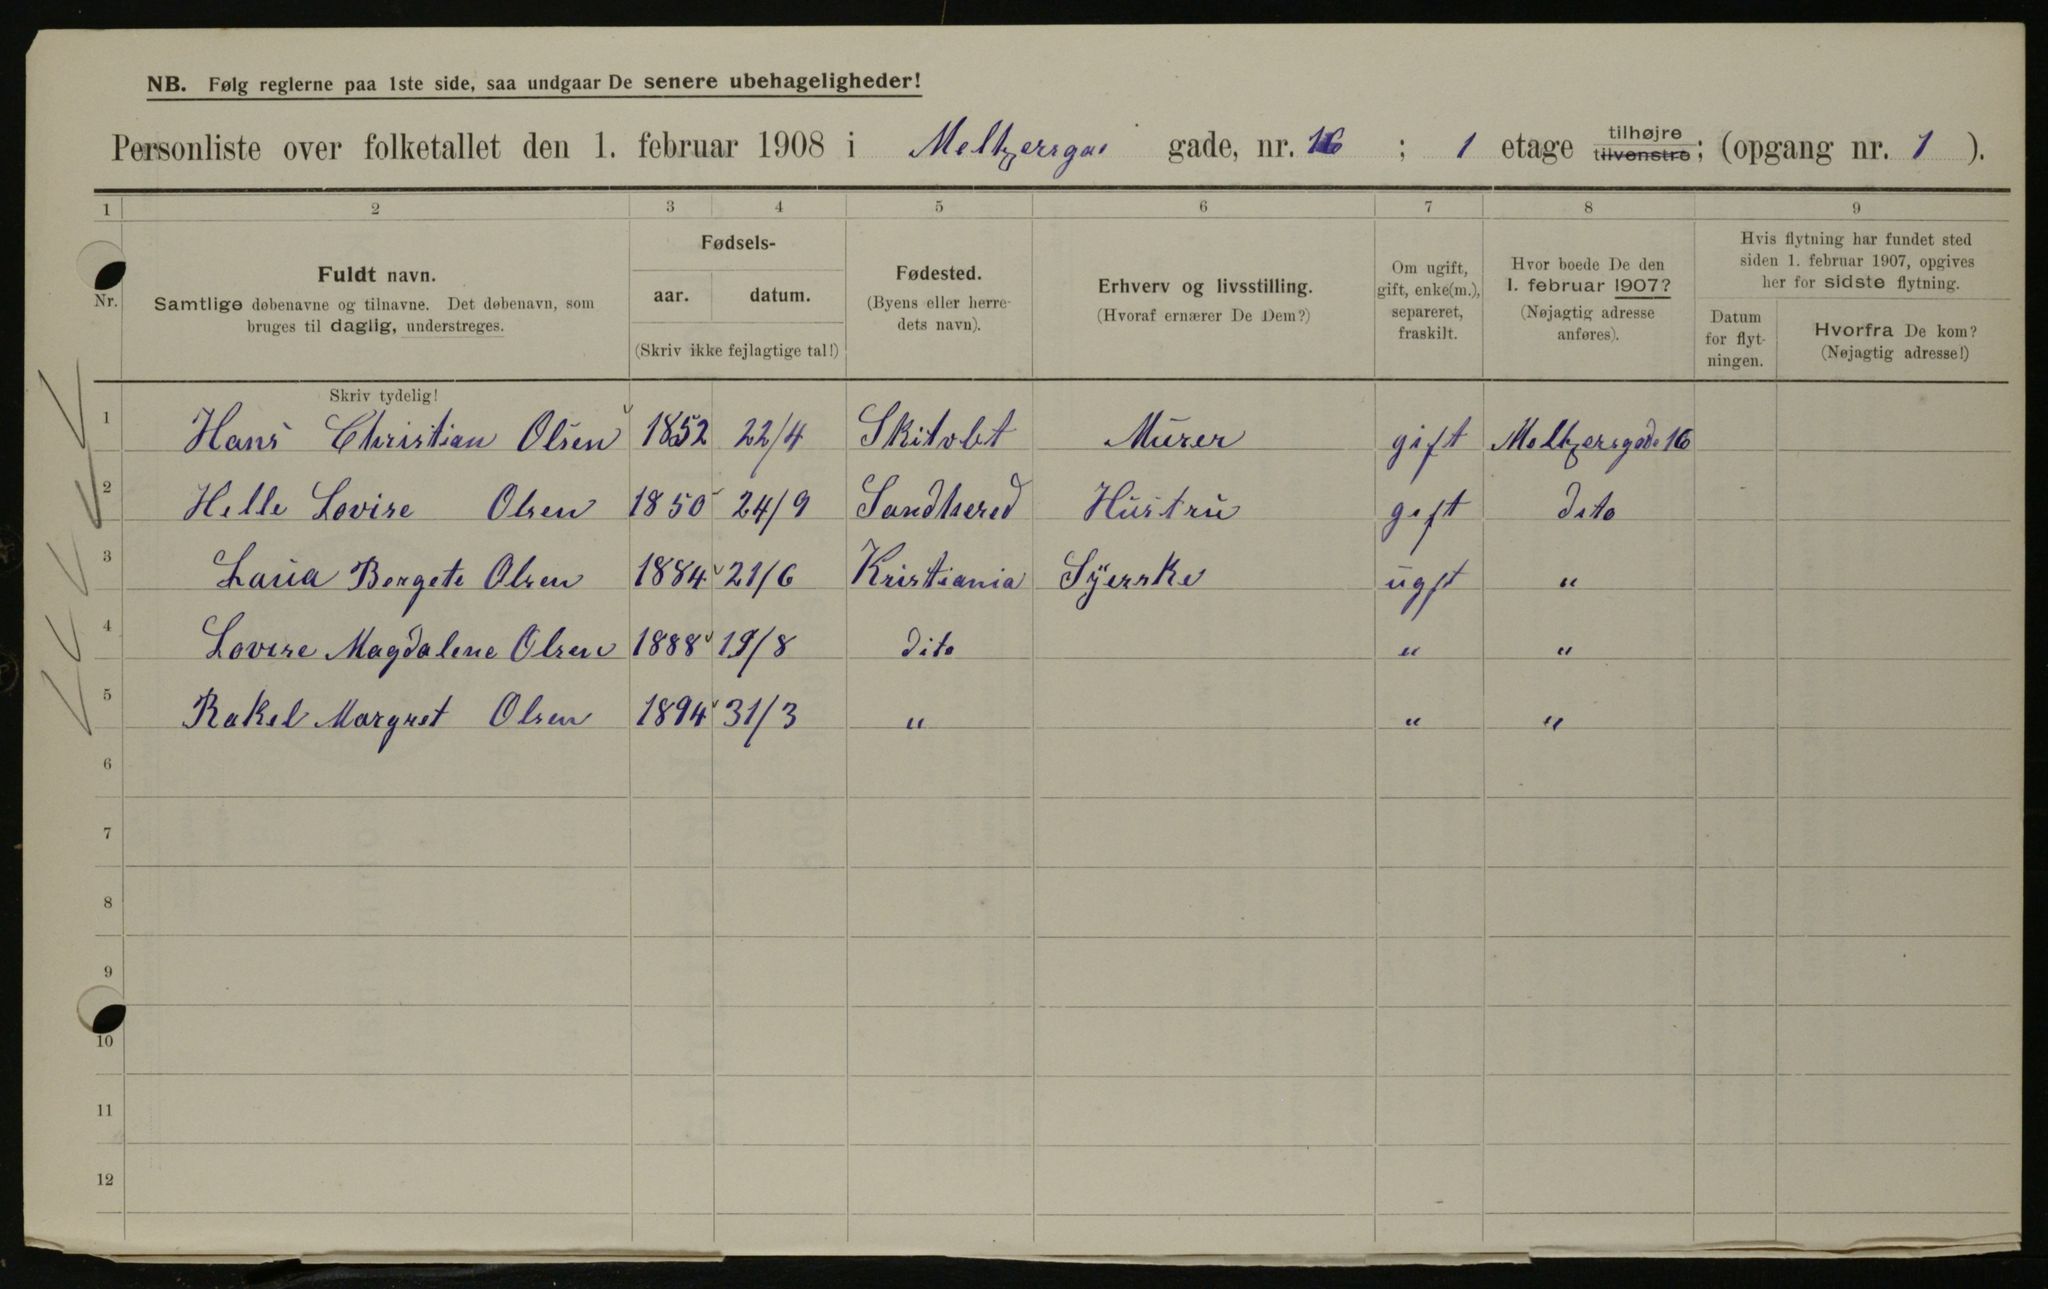 NB. Følg reglerne paa 1ste side, saa undgaar De senere ubehageligheder!
Personliste over folketallet den 1. februar 1908 i Meltzersga gade, nr. 16 ; 1 etage tilhøjre tilvenstre; (opgang nr. 1 ).
1 2 3 4 5 6 7 8 9
Nr.
Fuldt navn.
Samtlige døbenavne og tilnavne. Det døbenavn, som
bruges til daglig, understreges.
Skriv tydelig!
Fødsels-
aar. datum.
(Skriv ikke fejlagtige tal!)
Fødested.
(Byens eller herre-
dets navn).
Erhverv og livsstilling.
(Hvoraf ernærer De Dem?)
Om ugift,
gift, enke(m.),
separeret,
fraskilt.
Hvor boede De den
1. februar 1907?
(Nøjagtig adresse
anføres).
Hvis flytning har fundet sted
siden 1. februar 1907, opgives
her for sidste flytning.
Datum
for flyt-
ningen.
Hvorfra De kom?
(Nøjagtig adresse!)
1 Hans Christian Olsen 1852 22/4 Skitvbt Murer gift Meltzersgade 16
2 Helle Lovise Olsen 1850 24/9 Sandhered Hustru gift dito
3 Laua Bergete Olsen 1884 21/6 Kristiania Syerske ugft "
4 Lovise Magdalene Olsen 1888 19/8 dito " "
5 Rakel Margret Olsen 1894 31/3 " " "
6
7
8
9
10
11
12